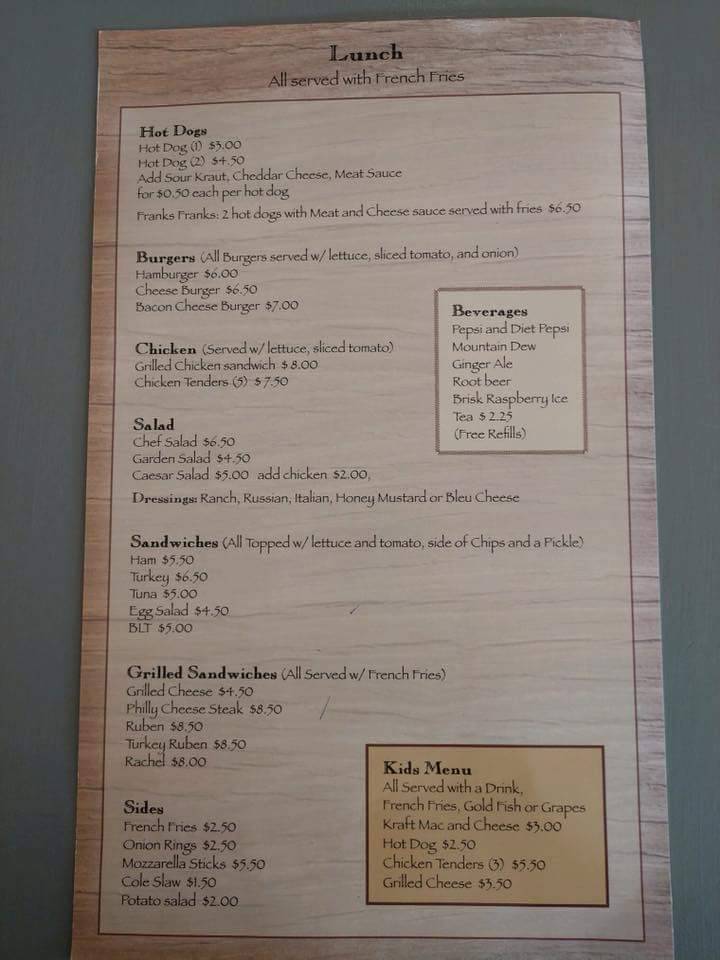 Lunch
All served with French Fries
Hot Dogs
Hot Dog (1) $3.00
Hot Dog (2) $4.50
Add Sour Kraut, Cheddar Cheese, Meat Sauce
for $0.50 each per hot dog
Franks Franks: 2 hot dogs with Meat and Cheese sauce served with fries $6.50
Burgers (All Burgers served w/ lettuce, sliced tomato, and onion)
Hamburger $6.00
Cheese Burger $6.50
Bacon Cheese Burger $7.00
Beverages
Pepsi and Diet Pepsi
Mountain Dew
Ginger Ale
Root beer
Brisk Raspberry Ice
Tea $2.25
(Free Refills)
Chicken (Served w/ lettuce, sliced tomato)
Grilled Chicken sandwich $8.00
Chicken Tenders (5) $7.50
Salad
Chef Salad $6.50
Garden Salad $4.50
Caesar Salad $5.00 add chicken $2.00,
Dressings: Ranch, Russian, Italian, Honey Mustard or Bleu Cheese
Sandwiches (All Topped w/ lettuce and tomato, side of Chips and a Pickle)
Ham $5.50
Turkey $6.50
Tuna $5.00
Egg Salad $4.50
BLT $5.00
Grilled Sandwiches (All Served w/ French Fries)
Grilled Cheese $4.50
Philly Cheese Steak $8.50
Ruben $8.50
Turkey Ruben $8.50
Rachel $8.00
Sides
French Fries $2.50
Onion Rings $2.50
Mozzarella Sticks $5.50
Cole Slaw $1.50
Potato salad $2.00
Kids Menu
All Served with a Drink,
French Fries, Gold Fish or Grapes
Kraft Mac and Cheese $3.00
Hot Dog $2.50
Chicken Tenders (3) $5.50
Grilled Cheese $3.50